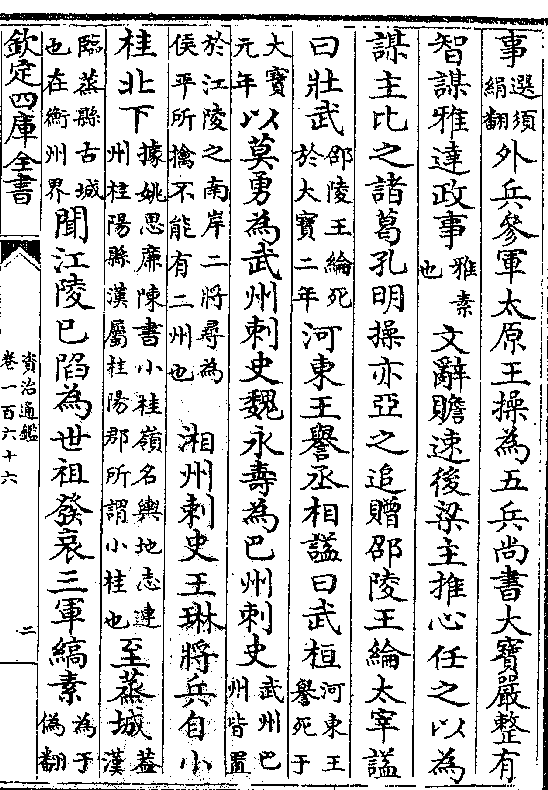 事選須絹翻外兵參軍太原王操為五兵尚書大寶嚴整有
智謀雅達政事雅素也文辭贍速後梁主推心任之以為
謀主比之諸葛孔明操亦亞之追贈邵陵王綸太宰諡
曰壯武邵陵王綸死於大寶二年河東王譽丞相諡曰武桓河東王譽死于
大寶元年以莫勇為武州刺史魏永壽為巴州刺史武州巴州皆置
於江陵之南岸二將尋為侯平所擒不能有二州也湘州刺史王琳將兵自小
桂北下據姚思廉陳書小桂嶺名輿地志連州桂陽縣漢屬桂陽郡所謂小桂也至蒸城蓋漢
臨蒸縣古城也在衡州界聞江陵已陷為世祖發哀三軍縞素為于偽翻
欽定四庫全書
資治通鑑
卷一百六十六
二